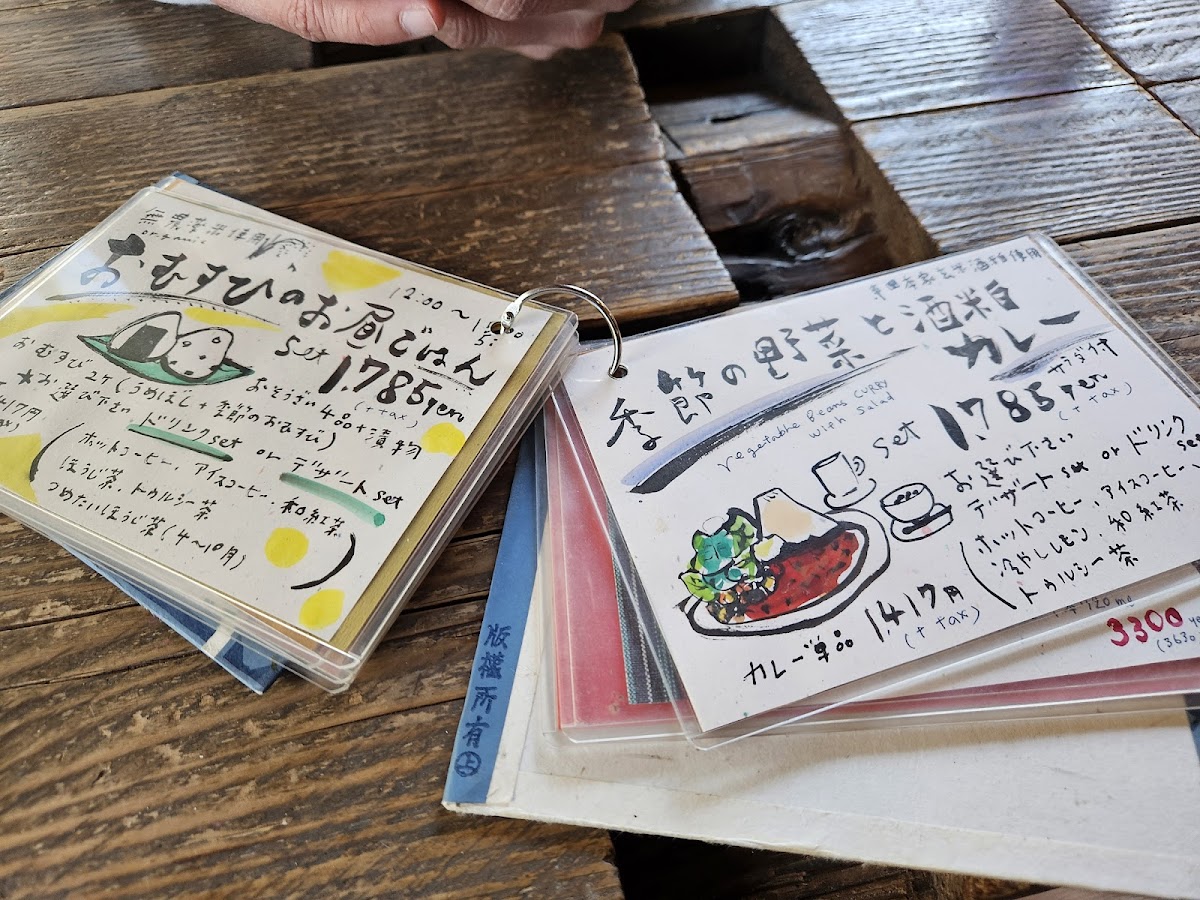 無農薬米使用
organic
おむすびのお昼ごはん
12:00〜15:00
set 1.785yen
(+tax)
おむすび2ケ(うめぼし+季節のおむすび)
おそうざい4品+漬物
1.417円
★お選び下さい ドリンクset or デザートset
(ホットコーヒー、アイスコーヒー、和紅茶
ほうじ茶、トゥルシー茶
つめたいほうじ茶(4〜10月)
)
寺田本家玄米酒粕使用
季節の野菜と酒粕
カレー
サラダ付
vegetable Beans CURRY
with Salad
set 1.785yen
(+ tax)
お選び下さい
デザートset or ドリンクset
(ホットコーヒー、アイスコーヒー
冷やしレモン、和紅茶
トゥルシー茶
カレー単品 1.417円
(+ tax)
720ml
3300
(3630
版権所有上